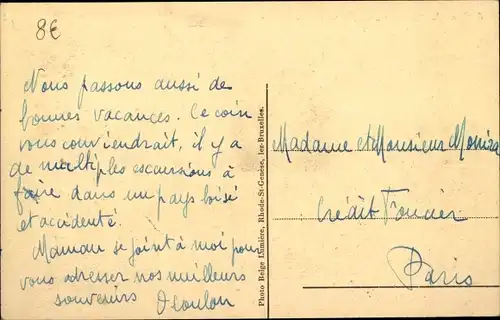 8€
Nous passons aussi de
bonnes vacances. Ce coin
vous conviendrait, il y a
de multiples excursions à
faire dans un pays boisé
et accidenté.
Maman se joint à moi pour
vous adresser nos meilleurs
souvenirs
Photo Belge Lumière, Rhode-St-Genèse, lez-Bruxelles.
Madame et Monsieur
Crédit Foncier
Paris